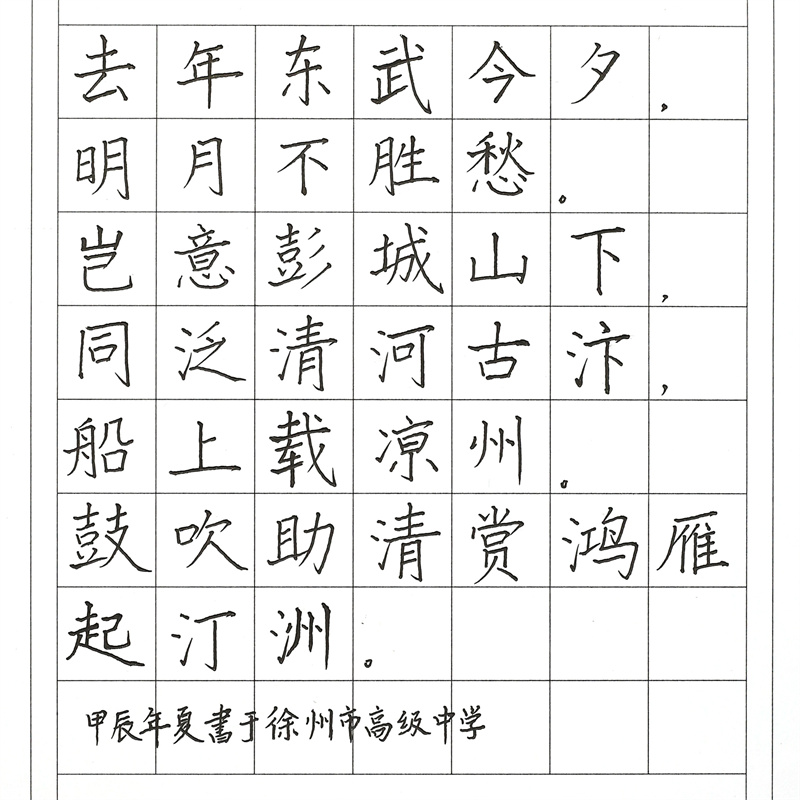 去年东武今夕，
明月不胜愁。
岂意彭城山下，
同泛清河古汴，
船上载凉州。
鼓吹助清赏鸿雁
起汀洲。
甲辰年夏书于徐州市高级中学